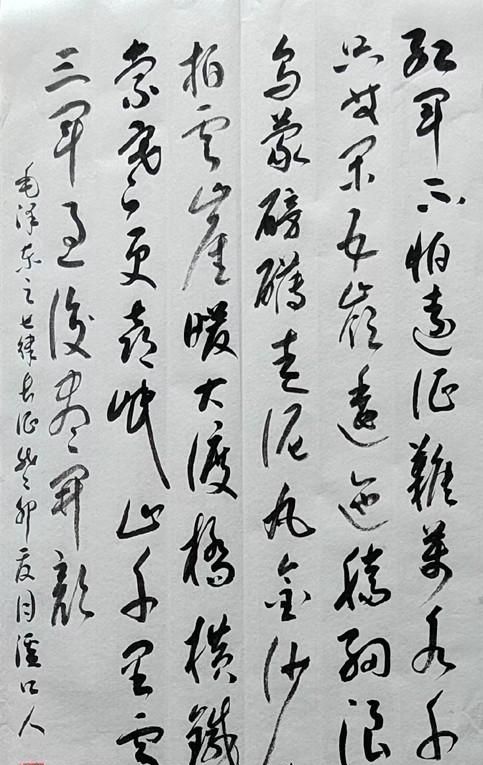 紅軍不怕遠征難萬水千
只等閑五嶺逶迤騰細浪
烏蒙磅礴走泥丸金沙
拍雲崖暖大渡橋橫鐵
索寒更喜岷山千里雪
三軍過後盡開顏
毛澤東之七律長征癸卯夏月溪口人